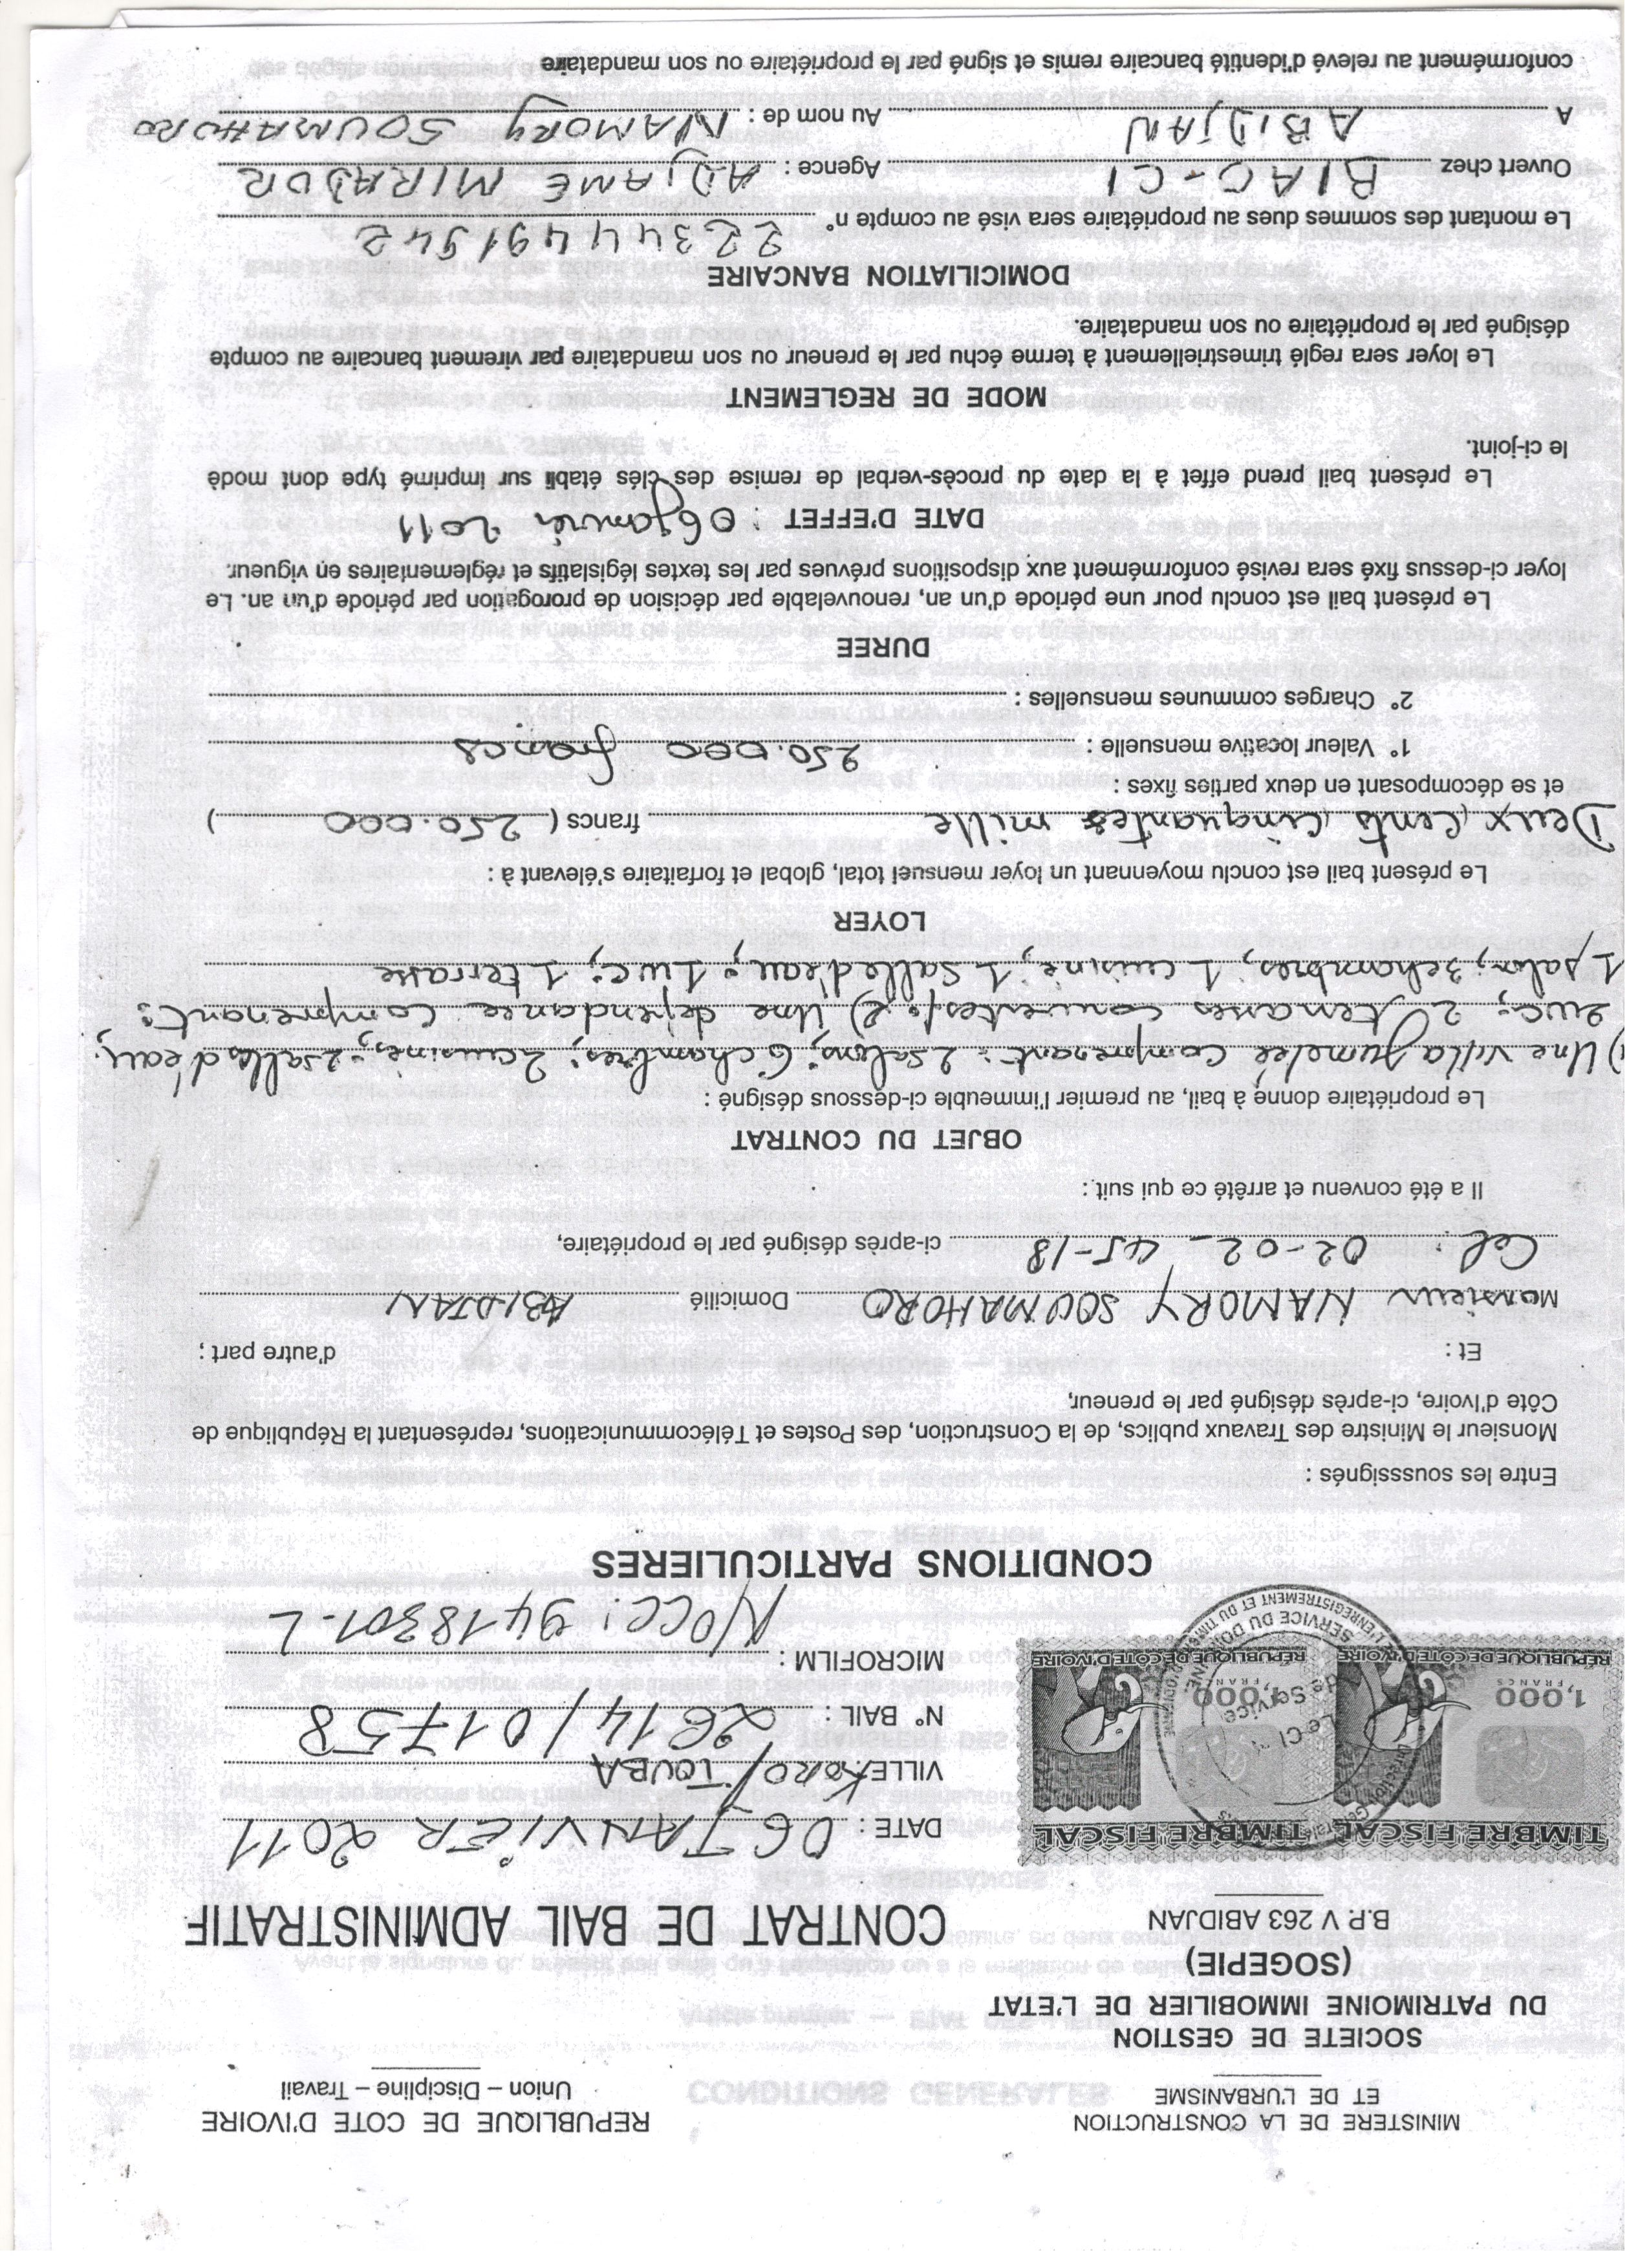 MINISTERE DE LA CONSTRUCTION
ET DE L'URBANISME
REPUBLIQUE DE COTE D'IVOIRE
Union – Discipline – Travail
SOCIETE DE GESTION
DU PATRIMOINE IMMOBILIER DE L'ETAT
(SOGEPIE)
B.P. V 263 ABIDJAN
CONTRAT DE BAIL ADMINISTRATIF
TIMBRE FISCAL TIMBRE FISCAL
1,000 1,000
FRANCS FRANCS
REPUBLIQUE DE COTE D'IVOIRE REPUBLIQUE DE COTE D'IVOIRE
DATE : 06 JANVIER 2011
VILLE KORO/TOUBA
N° BAIL : 2614/01758
MICROFILM :
NOCC: 9418301-L
CONDITIONS PARTICULIERES
Entre les sousssignés :
Monsieur le Ministre des Travaux publics, de la Construction, des Postes et Télécommunications, représentant la République de
Côte d'Ivoire, ci-après désigné par le preneur,
Et : d'autre part ;
Monsieur NAMORY SOUMAHORO Domicilié ABIDJAN
Cel : 02-02-45-18 ci-après désigné par le propriétaire,
Il a été convenu et arrêté ce qui suit :
OBJET DU CONTRAT
Le propriétaire donne à bail, au premier l'immeuble ci-dessous désigné :
1) Une villa Jumelée Comprenant : 2 salons; 6 chambres; 2 cuisine; 2 salles d'eau;
2 wc; 2 terrasses couvertes; 2) Une dependance Comprenant :
1 salon; 3 chambres; 1 cuisine; 1 Salle d'eau; 1 wc; 1 terrasse
LOYER
Le présent bail est conclu moyennant un loyer mensuel total, global et forfaitaire s'élevant à :
Deux Cents Cinquantes mille francs ( 250.000 )
et se décomposant en deux parties fixes :
1° Valeur locative mensuelle : 250.000 francs
2° Charges communes mensuelles :
DUREE
Le présent bail est conclu pour une période d'un an, renouvelable par décision de prorogation par période d'un an. Le
loyer ci-dessus fixé sera revisé conformément aux dispositions prévues par les textes législatifs et réglementaires en vigueur.
DATE D'EFFET : 06 janvier 2011
Le présent bail prend effet à la date du procès-verbal de remise des clés établi sur imprimé type dont modè
le ci-joint.
MODE DE REGLEMENT
Le loyer sera reglé trimestriellement à terme échu par le preneur ou son mandataire par virement bancaire au compte
désigné par le propriétaire ou son mandataire.
DOMICILIATION BANCAIRE
Le montant des sommes dues au propriétaire sera visé au compte n° 22344491942
Ouvert chez BIAO-CI Agence : ADJAME MIRADOR
A ABIDJAN Au nom de : NAMORY SOUMAHORO
conformément au relevé d'identité bancaire remis et signé par le propriétaire ou son mandataire